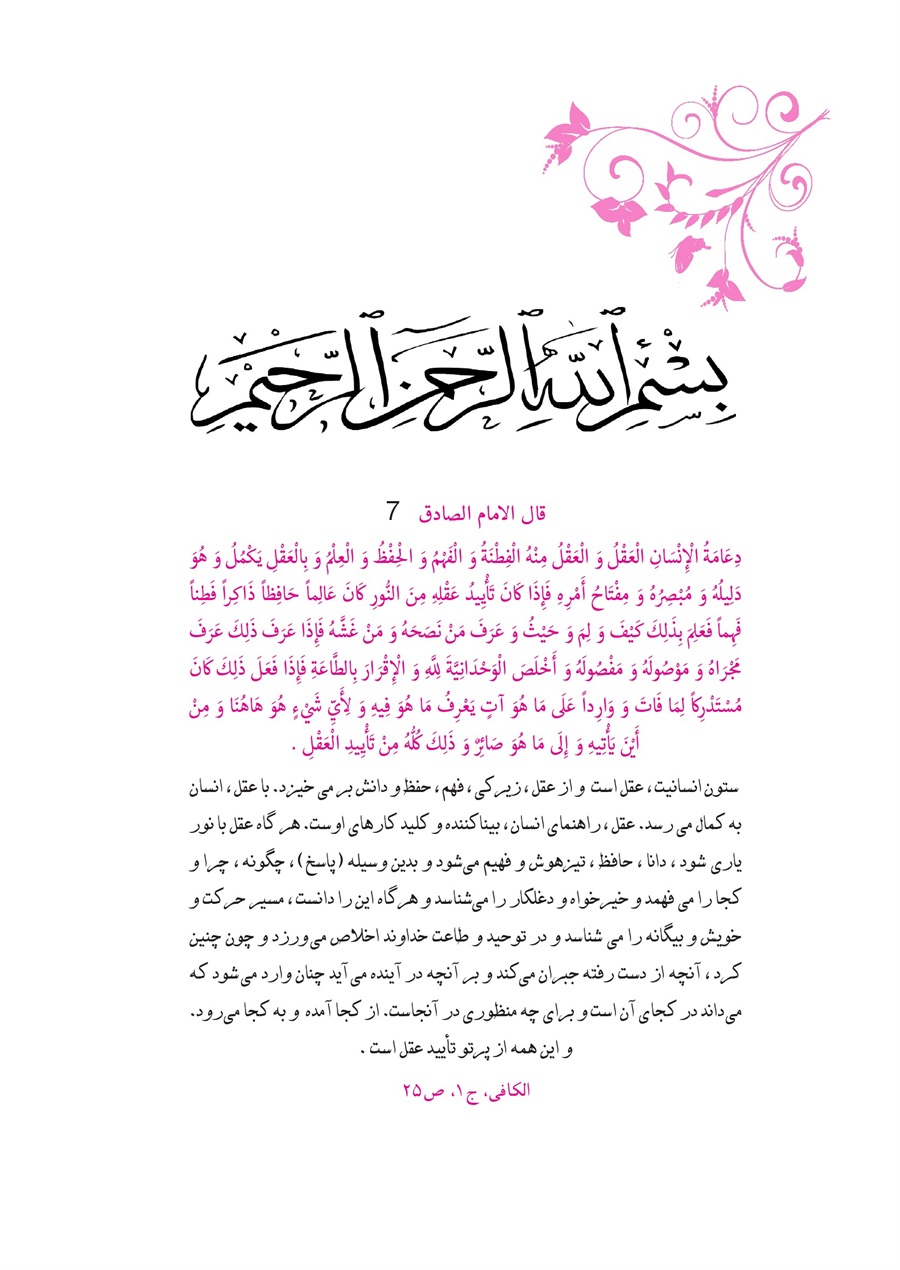 بِسْمِ ٱللَّهِ ٱلرَّحْمَٰنِ ٱلرَّحِيمِ
قال الامام الصادق 7
دِعَامَةُ الْإِنْسَانِ الْعَقْلُ وَ الْعَقْلُ مِنْهُ الْفِطْنَةُ وَ الْفَهْمُ وَ الْحِفْظُ وَ الْعِلْمُ وَ بِالْعَقْلِ يَكْمُلُ وَ هُوَ
دَلِيلُهُ وَ مُبْصِرُهُ وَ مِفْتَاحُ أَمْرِهِ فَإِذَا كَانَ تَأْيِيدُ عَقْلِهِ مِنَ النُّورِ كَانَ عَالِماً حَافِظاً ذَاكِراً فَطِناً
فَهِماً فَعَلِمَ بِذَلِكَ كَيْفَ وَ لِمَ وَ حَيْثُ وَ عَرَفَ مَنْ نَصَحَهُ وَ مَنْ غَشَّهُ فَإِذَا عَرَفَ ذَلِكَ عَرَفَ
مَجْرَاهُ وَ مَوْصُولَهُ وَ مَفْصُولَهُ وَ أَخْلَصَ الْوَحْدَانِيَّةَ لِلَّهِ وَ الْإِقْرَارَ بِالطَّاعَةِ فَإِذَا فَعَلَ ذَلِكَ كَانَ
مُسْتَدْرِكاً لِمَا فَاتَ وَ وَارِداً عَلَى مَا هُوَ آتٍ يَعْرِفُ مَا هُوَ فِيهِ وَ لِأَيِّ شَيْءٍ هُوَ هَاهُنَا وَ مِنْ
أَيْنَ يَأْتِيهِ وَ إِلَى مَا هُوَ صَائِرٌ وَ ذَلِكَ كُلُّهُ مِنْ تَأْيِيدِ الْعَقْلِ .
ستون انسانیت، عقل است و از عقل ، زیرکی ، فهم ، حفظ و دانش بر می خیزد. با عقل ، انسان
به کمال می رسد. عقل ، راهنمای انسان، بیناکننده و کلید کارهای اوست. هر گاه عقل با نور
یاری شود ، دانا ، حافظ ، تیزهوش و فهیم می‌شود و بدین وسیله (پاسخ) ، چگونه ، چرا و
کجا را می فهمد و خیرخواه و دغلکار را می‌شناسد و هرگاه این را دانست ، مسیر حرکت و
خویش و بیگانه را می شناسد و در توحید و طاعت خداوند اخلاص می‌ورزد و چون چنین
کرد ، آنچه از دست رفته جبران می‌کند و بر آنچه در آینده می آید چنان وارد می شود که
می‌داند در کجای آن است و برای چه منظوری در آنجاست. از کجا آمده و به کجا می‌رود.
و این همه از پرتو تأیید عقل است .
الکافی، ج۱، ص۲۵